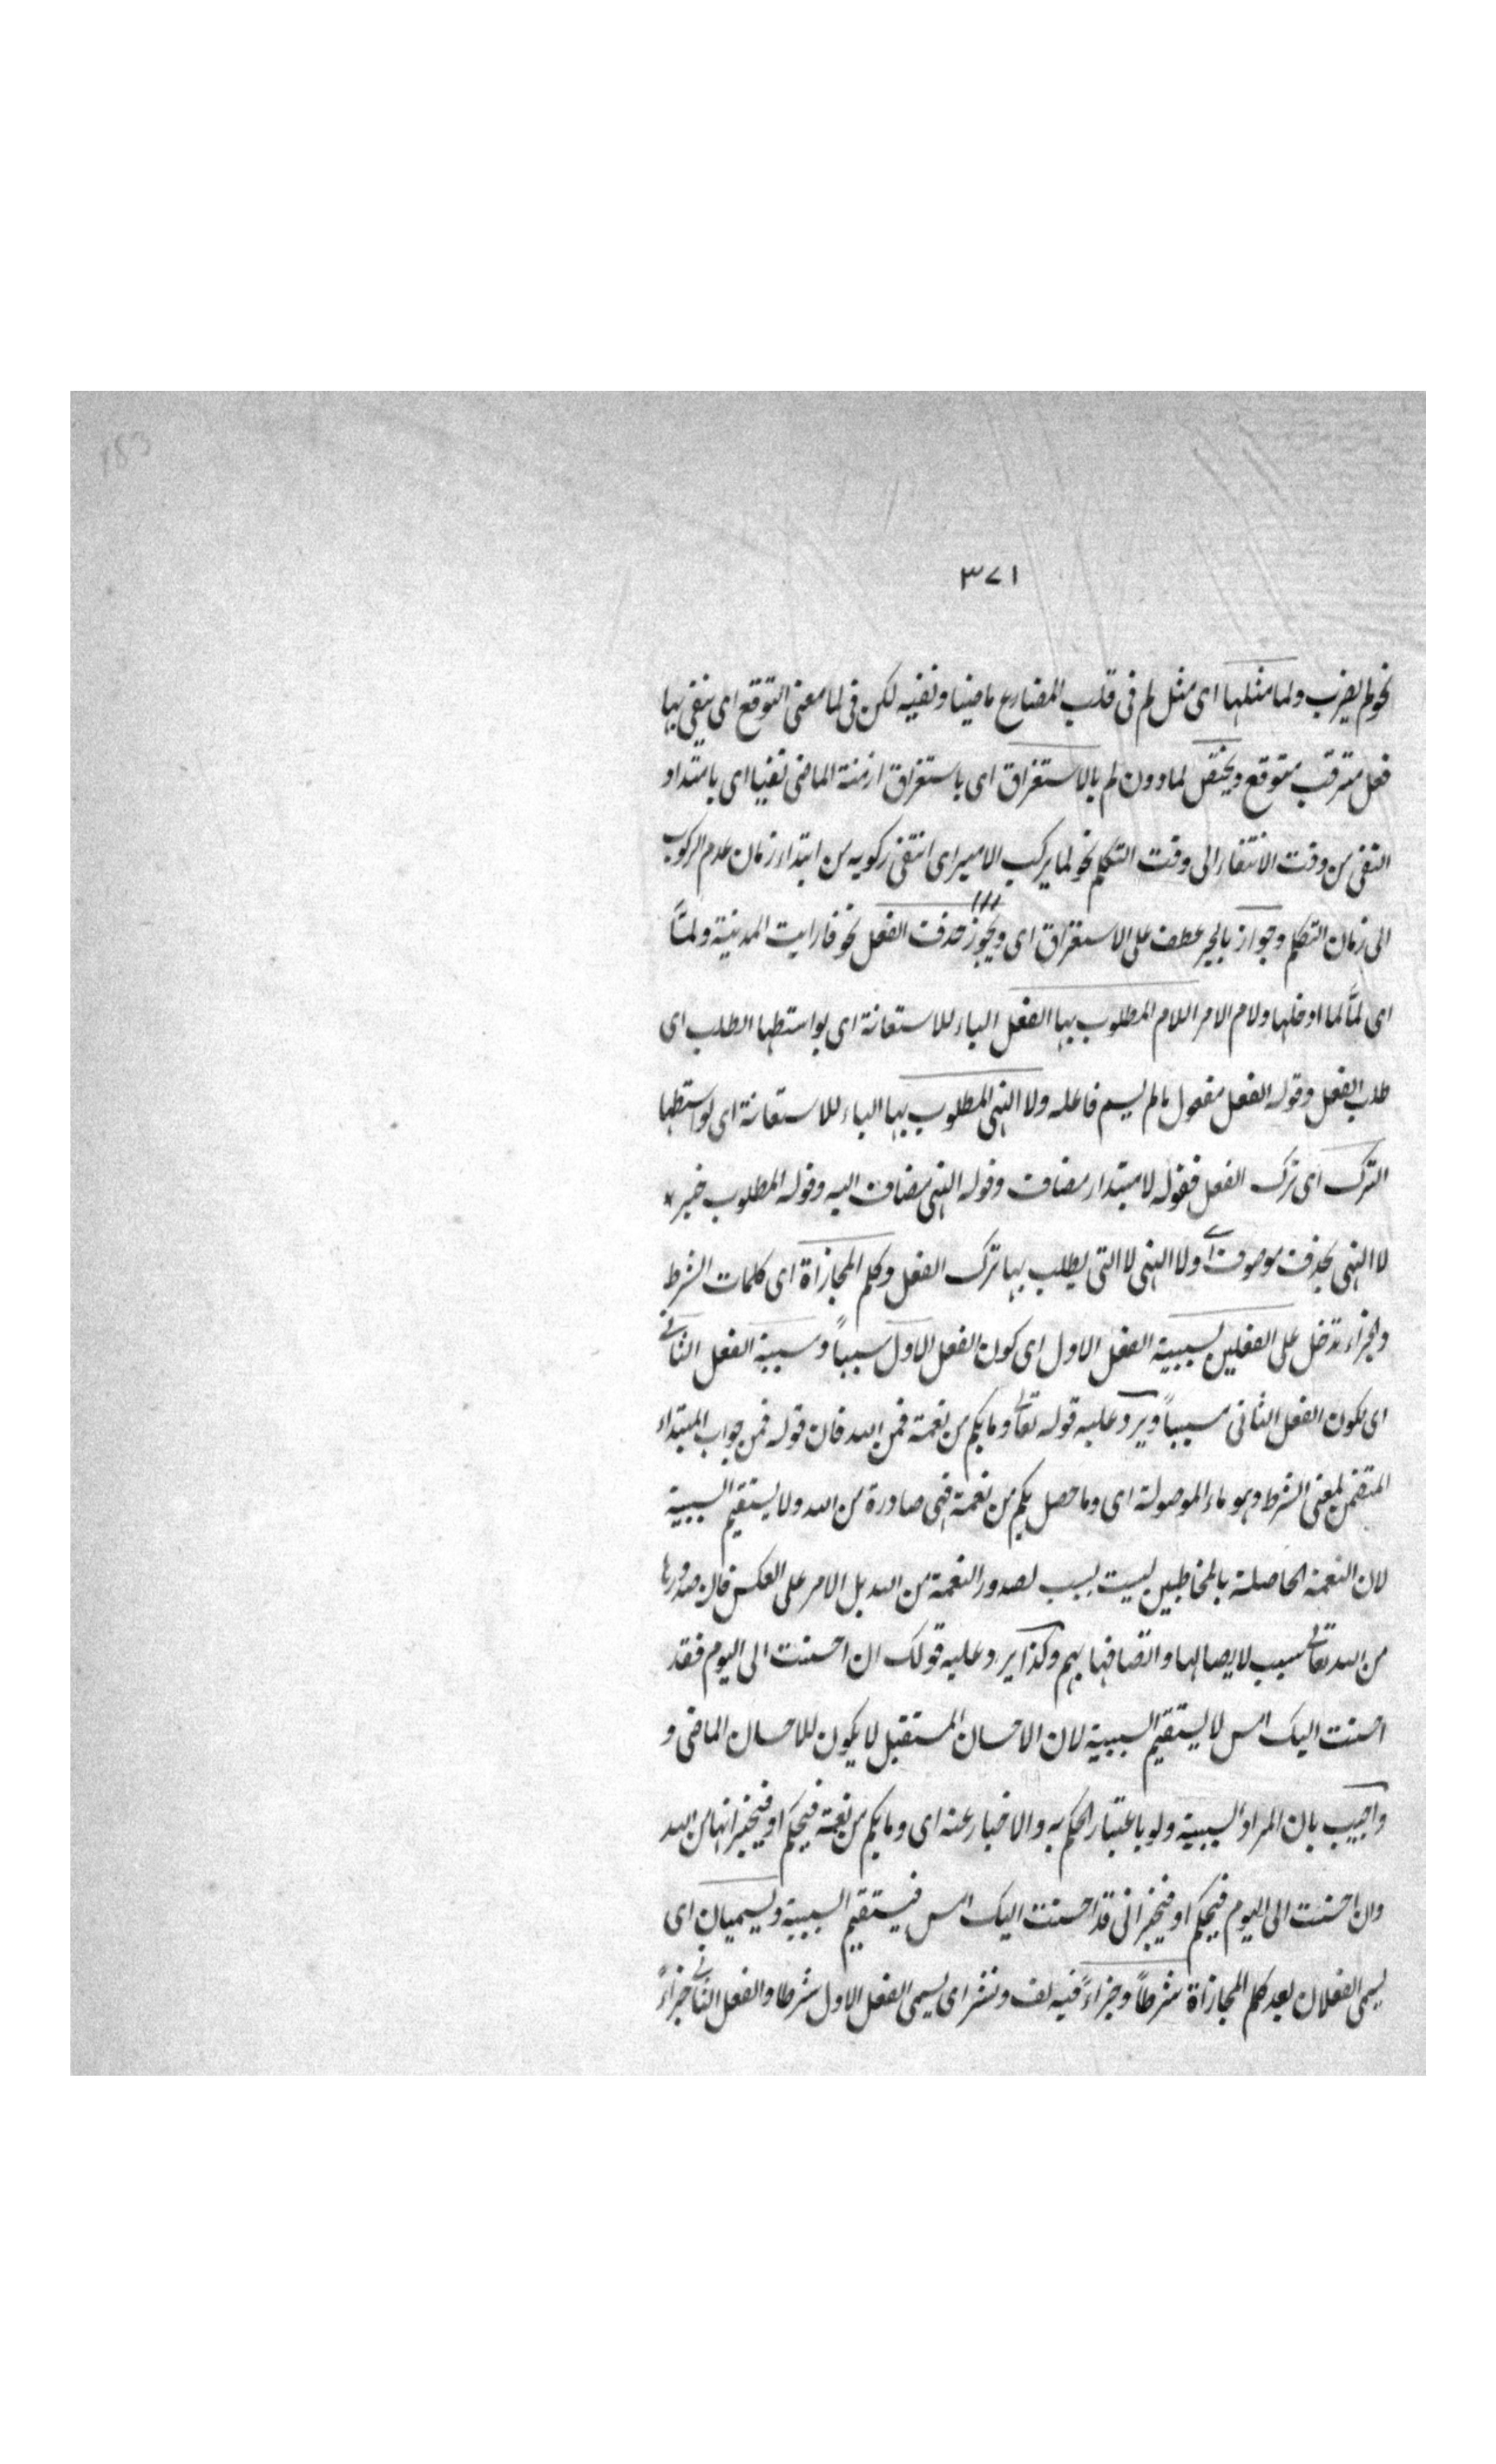 183
٣٧١
نحو لم يضرب ولما مثلها اى مثل لم فى قلب المضارع ماضيا ونفيه لكن فى لما معنى التوقع اى ينفى بها
فعل مترقب متوقع ويختص لما دون لم بالاستغراق اى باستغراق ازمنة الماضى نفيا اى بامتداد
النفى من وقت الانتفاء الى وقت التكلم نحو لما يركب الامير اى انتفى ركوبه من ابتداء زمان عدم الركوب
الى زمان التكلم وجواز بالجر عطف على الاستغراق اى ويجوز حذف الفعل نحو فارايت المدينة ولمّا
اى لمّا لما ادخلها ولام الامر اللام المطلوب بها الفعل الباء للاستعانة اى بواسطتها الطلب اى
طلب الفعل وقوله الفعل مفعول ما لم يسم فاعله ولا النهى المطلوب بها الباء للاستعانة اى بواسطتها
الترك اى ترك الفعل فقوله لا مبتداء مضاف وقوله النهى مضاف اليه وقوله المطلوب خبر
لا النهى بحذف موصوف اے ولا النهى لا التى يطلب بها ترك الفعل وكلم المجازاة اى كلمات الشرط
والجزاء تدخل على الفعلين لسببية الفعل الاول اى كون الفعل الاول سبباً ومسببية الفعل الثانى
اى لكون الفعل الثانى مسبباً ويرد عليه قوله تعالى وما بكم من نعمة فمن الله فان قوله فمن جواب المبتداء
المتضمن لمعنى الشرط وهو ماء الموصولة اى وما حصل بكم من نعمة فهى صادرة من الله ولا يستقيم السببية
لان النعمة الحاصلة بالمخاطبين ليست بسبب لصدور النعمة من الله بل الامر على العكس فان صدورها
من الله تعالى سبب لايصالها واتصافها بهم وكذا يرد عليه قولك ان احسنت الى اليوم فقد
احسنت اليك امس لا يستقيم السببية لان الاحسان المستقبل لا يكون للاحسان الماضى و
واجيب بان المراد السببية ولو باعتبار الحكم به والاخبار عنه اى وما بكم من نعمة فيحكم او فيخبر انها من الله
وان احسنت الى اليوم فيحكم او فيخبر انى قد احسنت اليك امس فيستقيم السببية ويسميان اى
يسمى الفعلان بعد كلم المجازاة شرطاً وجزاءً فيه لف ونشر اى يسمى الفعل الاول شرطا والفعل الثانى جزاءً